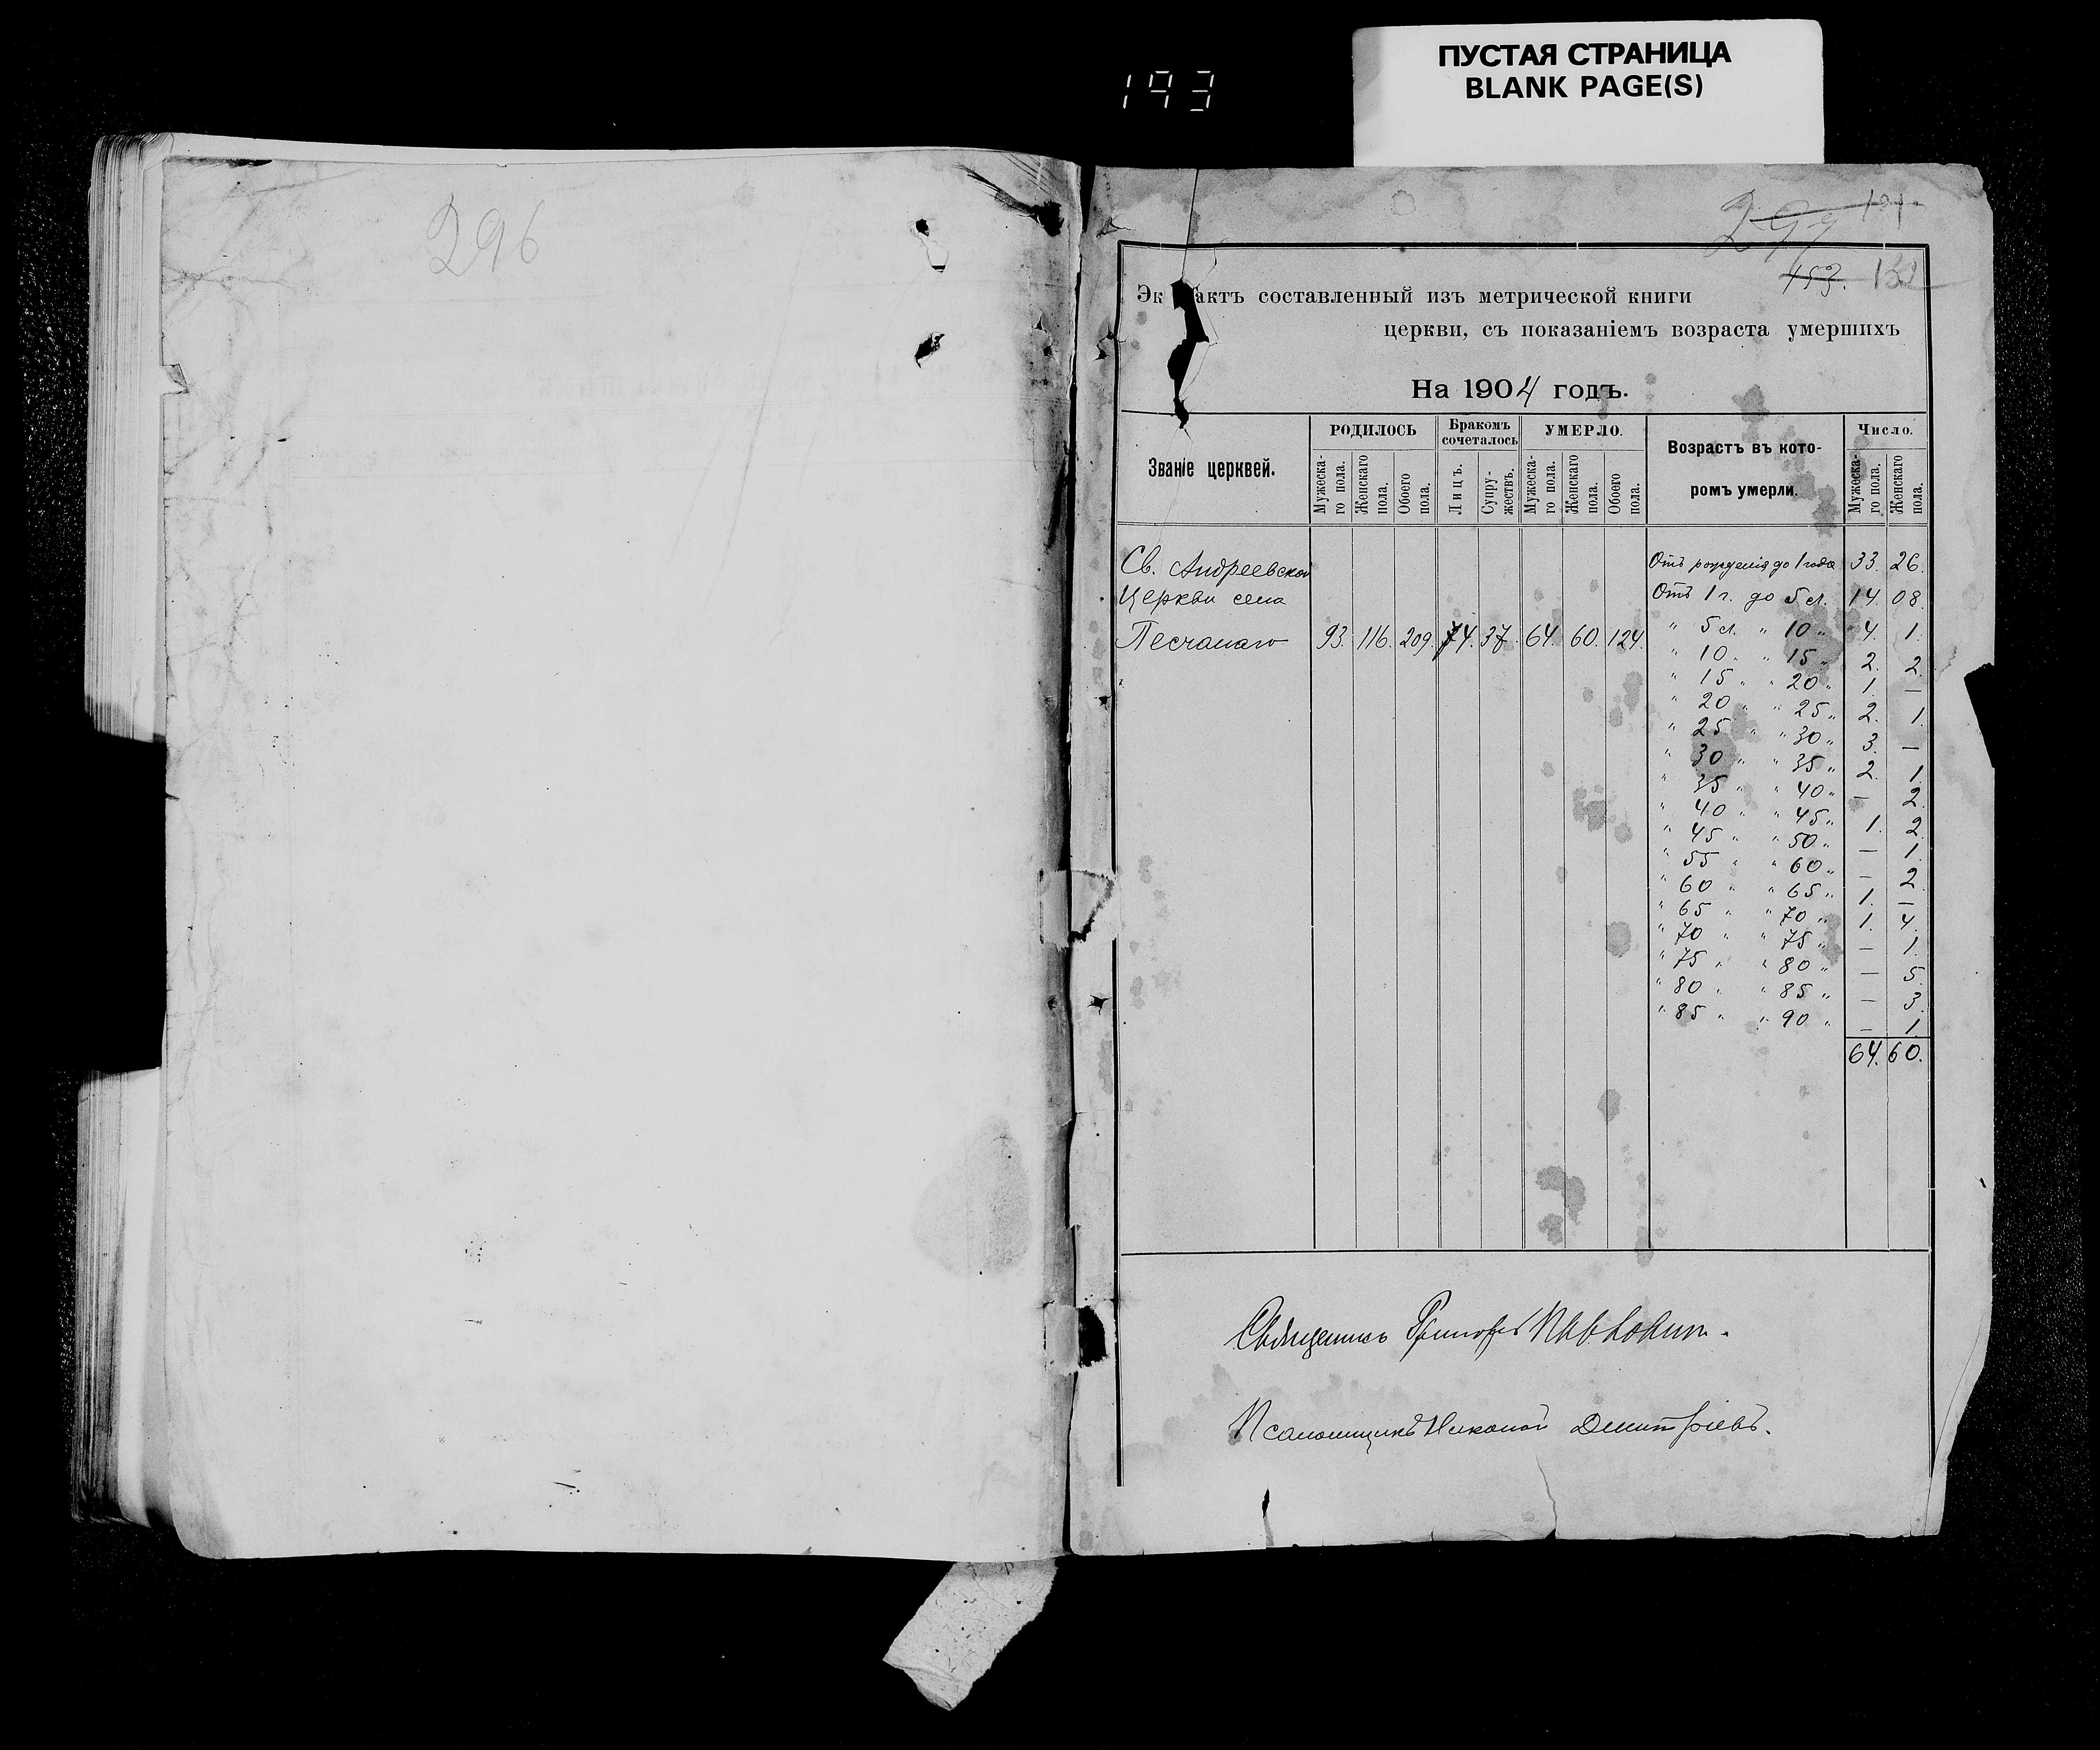 ПУСТАЯ СТРАНИЦА
BLANK PAGE(S)
193
296
297 191
153. 152
Эк актъ составленный изъ метрической книги
церкви, съ показаніемъ возраста умершихъ
На 1904 годъ.
Званіе церквей. РОДИЛОСЬ Бракомъ сочеталось УМЕРЛО. Возрастъ въ кото- ромъ умерли. Число.
Мужеска- го пола. Женскаго пола. Обоего пола. Лицъ. Супру- жествъ. Мужеска- го пола. Женскаго пола. Обоего пола. Мужеска- го пола. Женскаго пола.
Св. Андреевской Отъ рожденія до 1 года 33. 26.
Церкви села Отъ 1 г. до 5 л. 14. 08.
Песчанаго 93. 116. 209. 74. 37. 64. 60. 124. " 5 л. " 10 " 4. 1.
" 10 " " 15 " 2. 2.
" 15 " " 20 " 1. —
" 20 " " 25 " 2. 1.
" 25 " " 30 " 3. —
" 30 " " 35 " 2. 1.
" 35 " " 40 " — 2.
" 40 " " 45 " 1. 2.
" 45 " " 50 " — 1.
" 55 " " 60 " — 2.
" 60 " " 65 " 1. —
" 65 " " 70 " 1. 4.
" 70 " " 75 " — 1.
" 75 " " 80 " — 5.
" 80 " " 85 " — 3.
" 85 " " 90 " — 1.
64. 60.
Священникъ Григорій
Псаломщикъ Николай Димитріевъ.